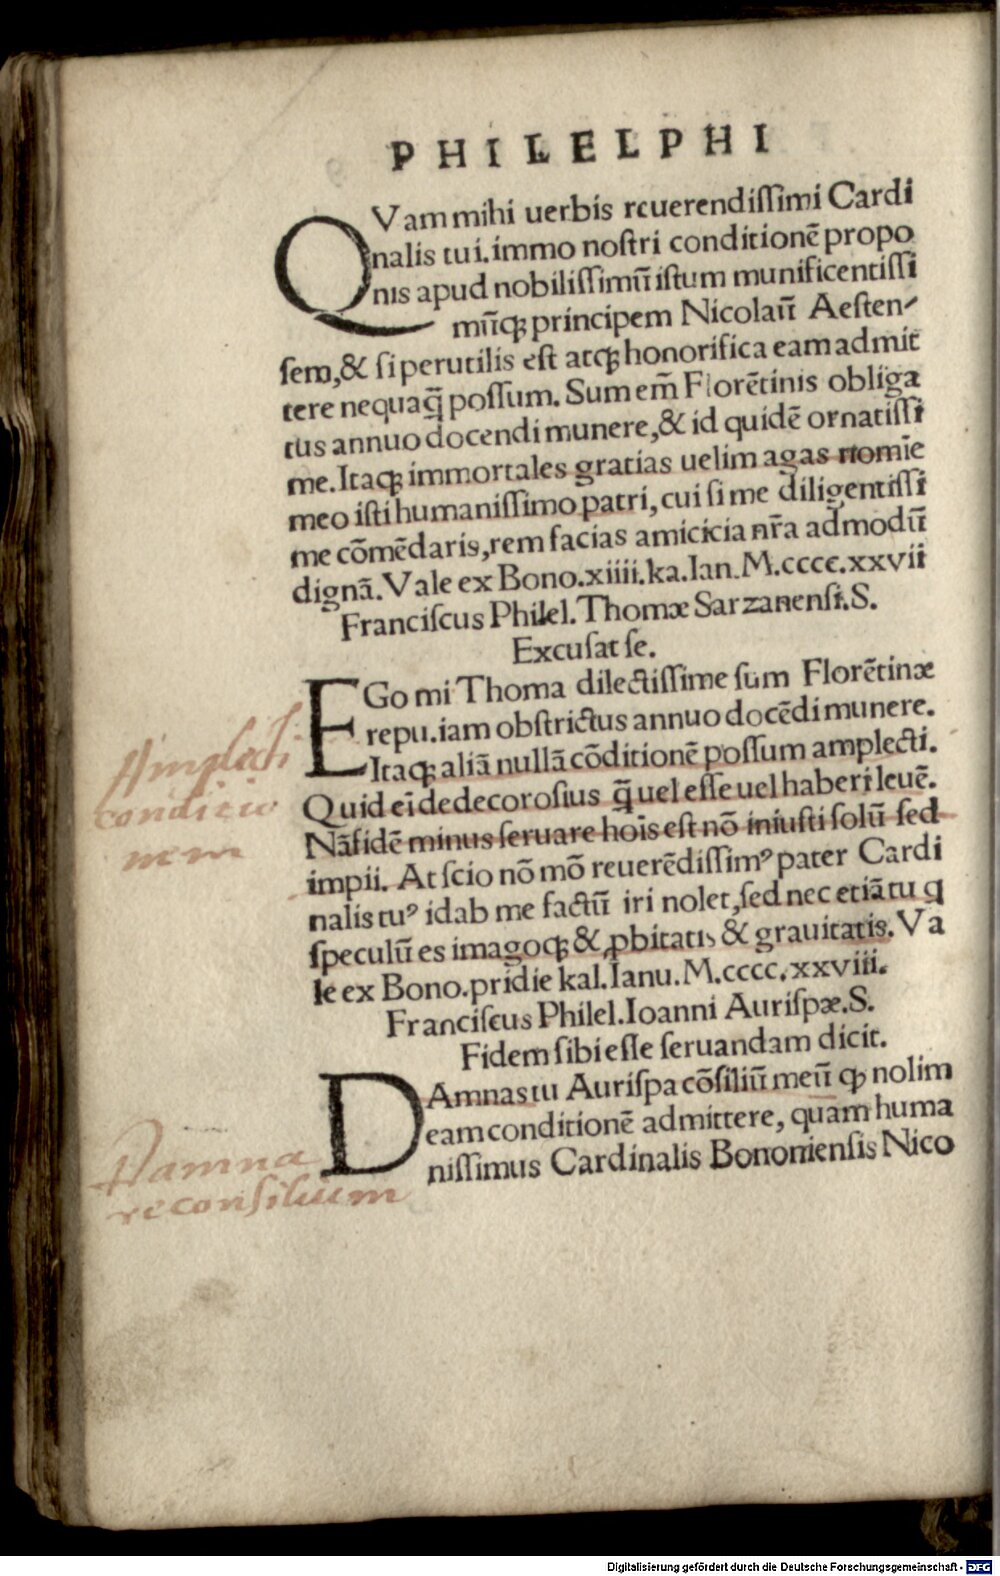 PHILELPHI
QVam mihi uerbis reuerendiſſimi Cardi
nalis tui. immo noſtri conditionē propo
nis apud nobiliſſimū iſtum munificentiſſi
mūq; principem Nicolaū Aeſten-
ſem, & ſi perutilis eſt atq; honorifica eam admit
tere nequaq̄ poſſum. Sum em̄ Florētinis obliga
tus annuo docendi munere, & id quidē ornatiſſi
me. Itaq; immortales gratias uelim agas nomīe
meo iſti humaniſſimo patri, cui ſi me diligentiſſi
me cōmēdaris, rem facias amicicia nr̄a admodū
dignā. Vale ex Bono. xiiii. ka. Ian. M.cccc.xxvii
Franciſcus Philel. Thomæ Sarzanenſi. S.
Excuſat ſe.
EGo mi Thoma dilectiſſime ſum Florētinæ
repu. iam obſtrictus annuo docēdi munere.
Itaq; aliā nullā cōditionē poſſum amplecti.
Quid eī dedecoroſius q̄ uel eſſe uel haberi leuē.
Nā fidē minus ſeruare hoīs eſt nō iniuſti ſolū ſed
impii. At ſcio nō mō reuerēdiſſimꝰ pater Cardi
nalis tuꝰ id ab me factū iri nolet, ſed nec etiā tu q
ſpeculū es imagoq; & ꝓbitatis & grauitatis. Va
le ex Bono. pridie kal. Ianu. M.cccc.xxviii.
Franciſcus Philel. Ioanni Auriſpæ. S.
Fidem ſibi eſſe ſeruandam dicit.
DAmnas tu Auriſpa cōſiliū meū ꝙ nolim
eam conditionē admittere, quam huma
niſſimus Cardinalis Bononienſis Nico
Amplecti
conditio
nem
Damna
re consilium
Digitalisierung gefördert durch die Deutsche Forschungsgemeinschaft - DFG